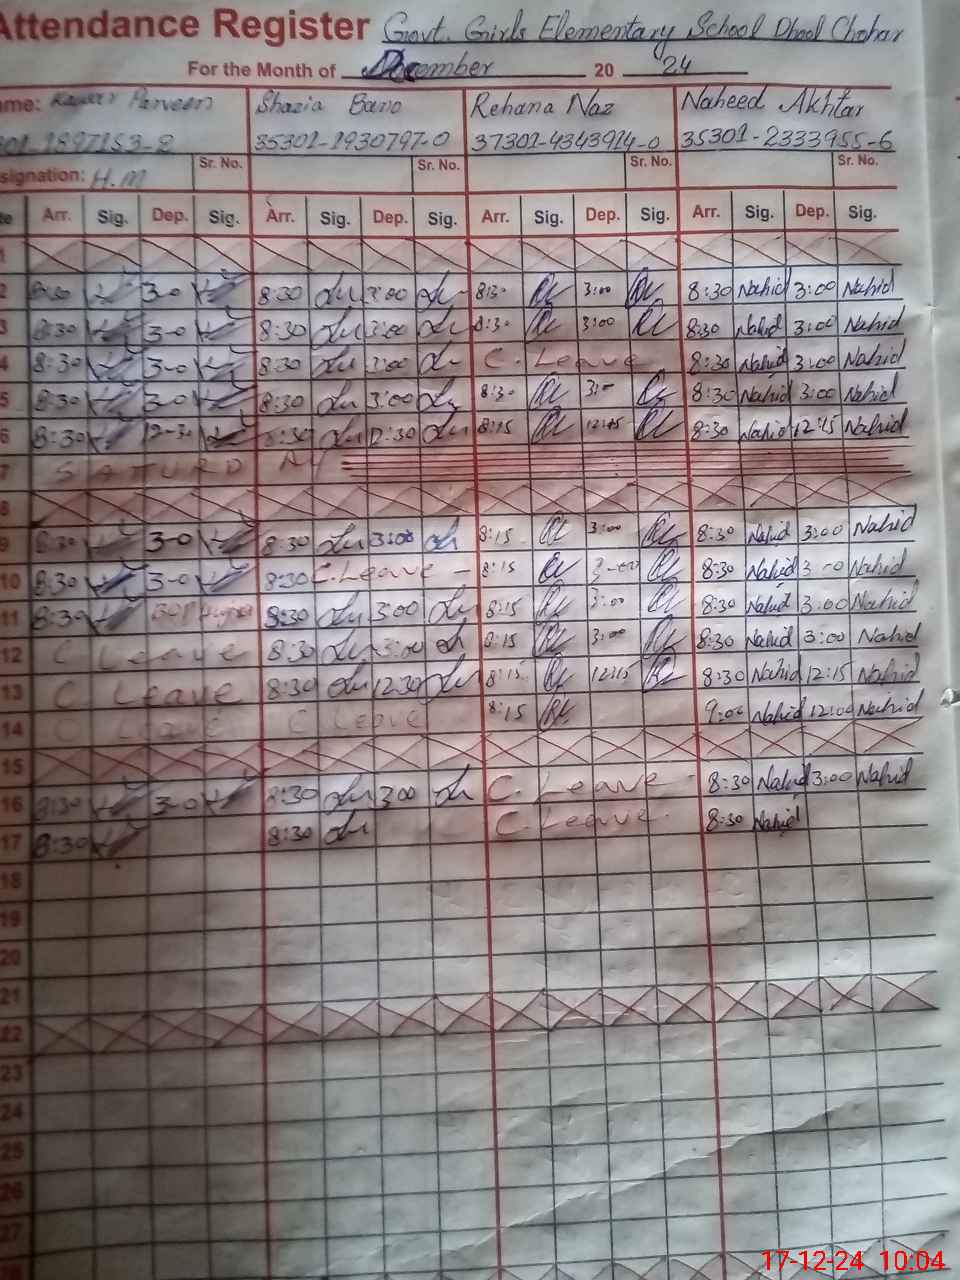 Attendance Register Govt. Girls Elementary School Dhool Chohar
For the Month of December 20 24
ame: Parveen Shazia Bano Rehana Naz Naheed Akhtar
301-1897153-8 35301-1930797-0 37301-4343914-0 35301-2333955-6
Sr. No. Sr. No. Sr. No. Sr. No.
signation: H.M
te Arr. Sig. Dep. Sig. Arr. Sig. Dep. Sig. Arr. Sig. Dep. Sig. Arr. Sig. Dep. Sig.
1
2 8:30 3-0 8:30 3:00 8:30 3:00 8:30 Nahid 3:00 Nahid
3 8:30 3-0 8:30 3:00 8:30 3:00 8:30 Nahid 3:00 Nahid
4 8:30 3-0 8:30 3:00 C. Leave 8:30 Nahid 3:00 Nahid
5 8:30 3-0 8:30 3:00 8:30 3:00 8:30 Nahid 3:00 Nahid
6 8:30 12-30 8:30 12:30 8:15 12:15 8:30 Nahid 12:15 Nahid
7 SATURDAY
8
9 8:30 3-0 8:30 3:00 8:15 3:00 8:30 Nahid 3:00 Nahid
10 8:30 3-0 8:30 C. Leave - 8:15 3-00 8:30 Nahid 3-0 Nahid
11 8:30 8:30 3:00 8:15 3:00 8:30 Nahid 3:00 Nahid
12 C Leave 8:30 3:00 8:15 3:00 8:30 Nahid 3:00 Nahid
13 C Leave 8:30 12:30 8:15 12:15 8:30 Nahid 12:15 Nahid
14 C Leave C Leave 8:15 9:00 Nahid 12:00 Nahid
15
16 8:30 3-0 8:30 3:00 C. Leave - 8:30 Nahid 3:00 Nahid
17 8:30 8:30 C. Leave. 8:30 Nahid
18
19
20
21
22
23
24
25
26
27
17-12-24 10:04